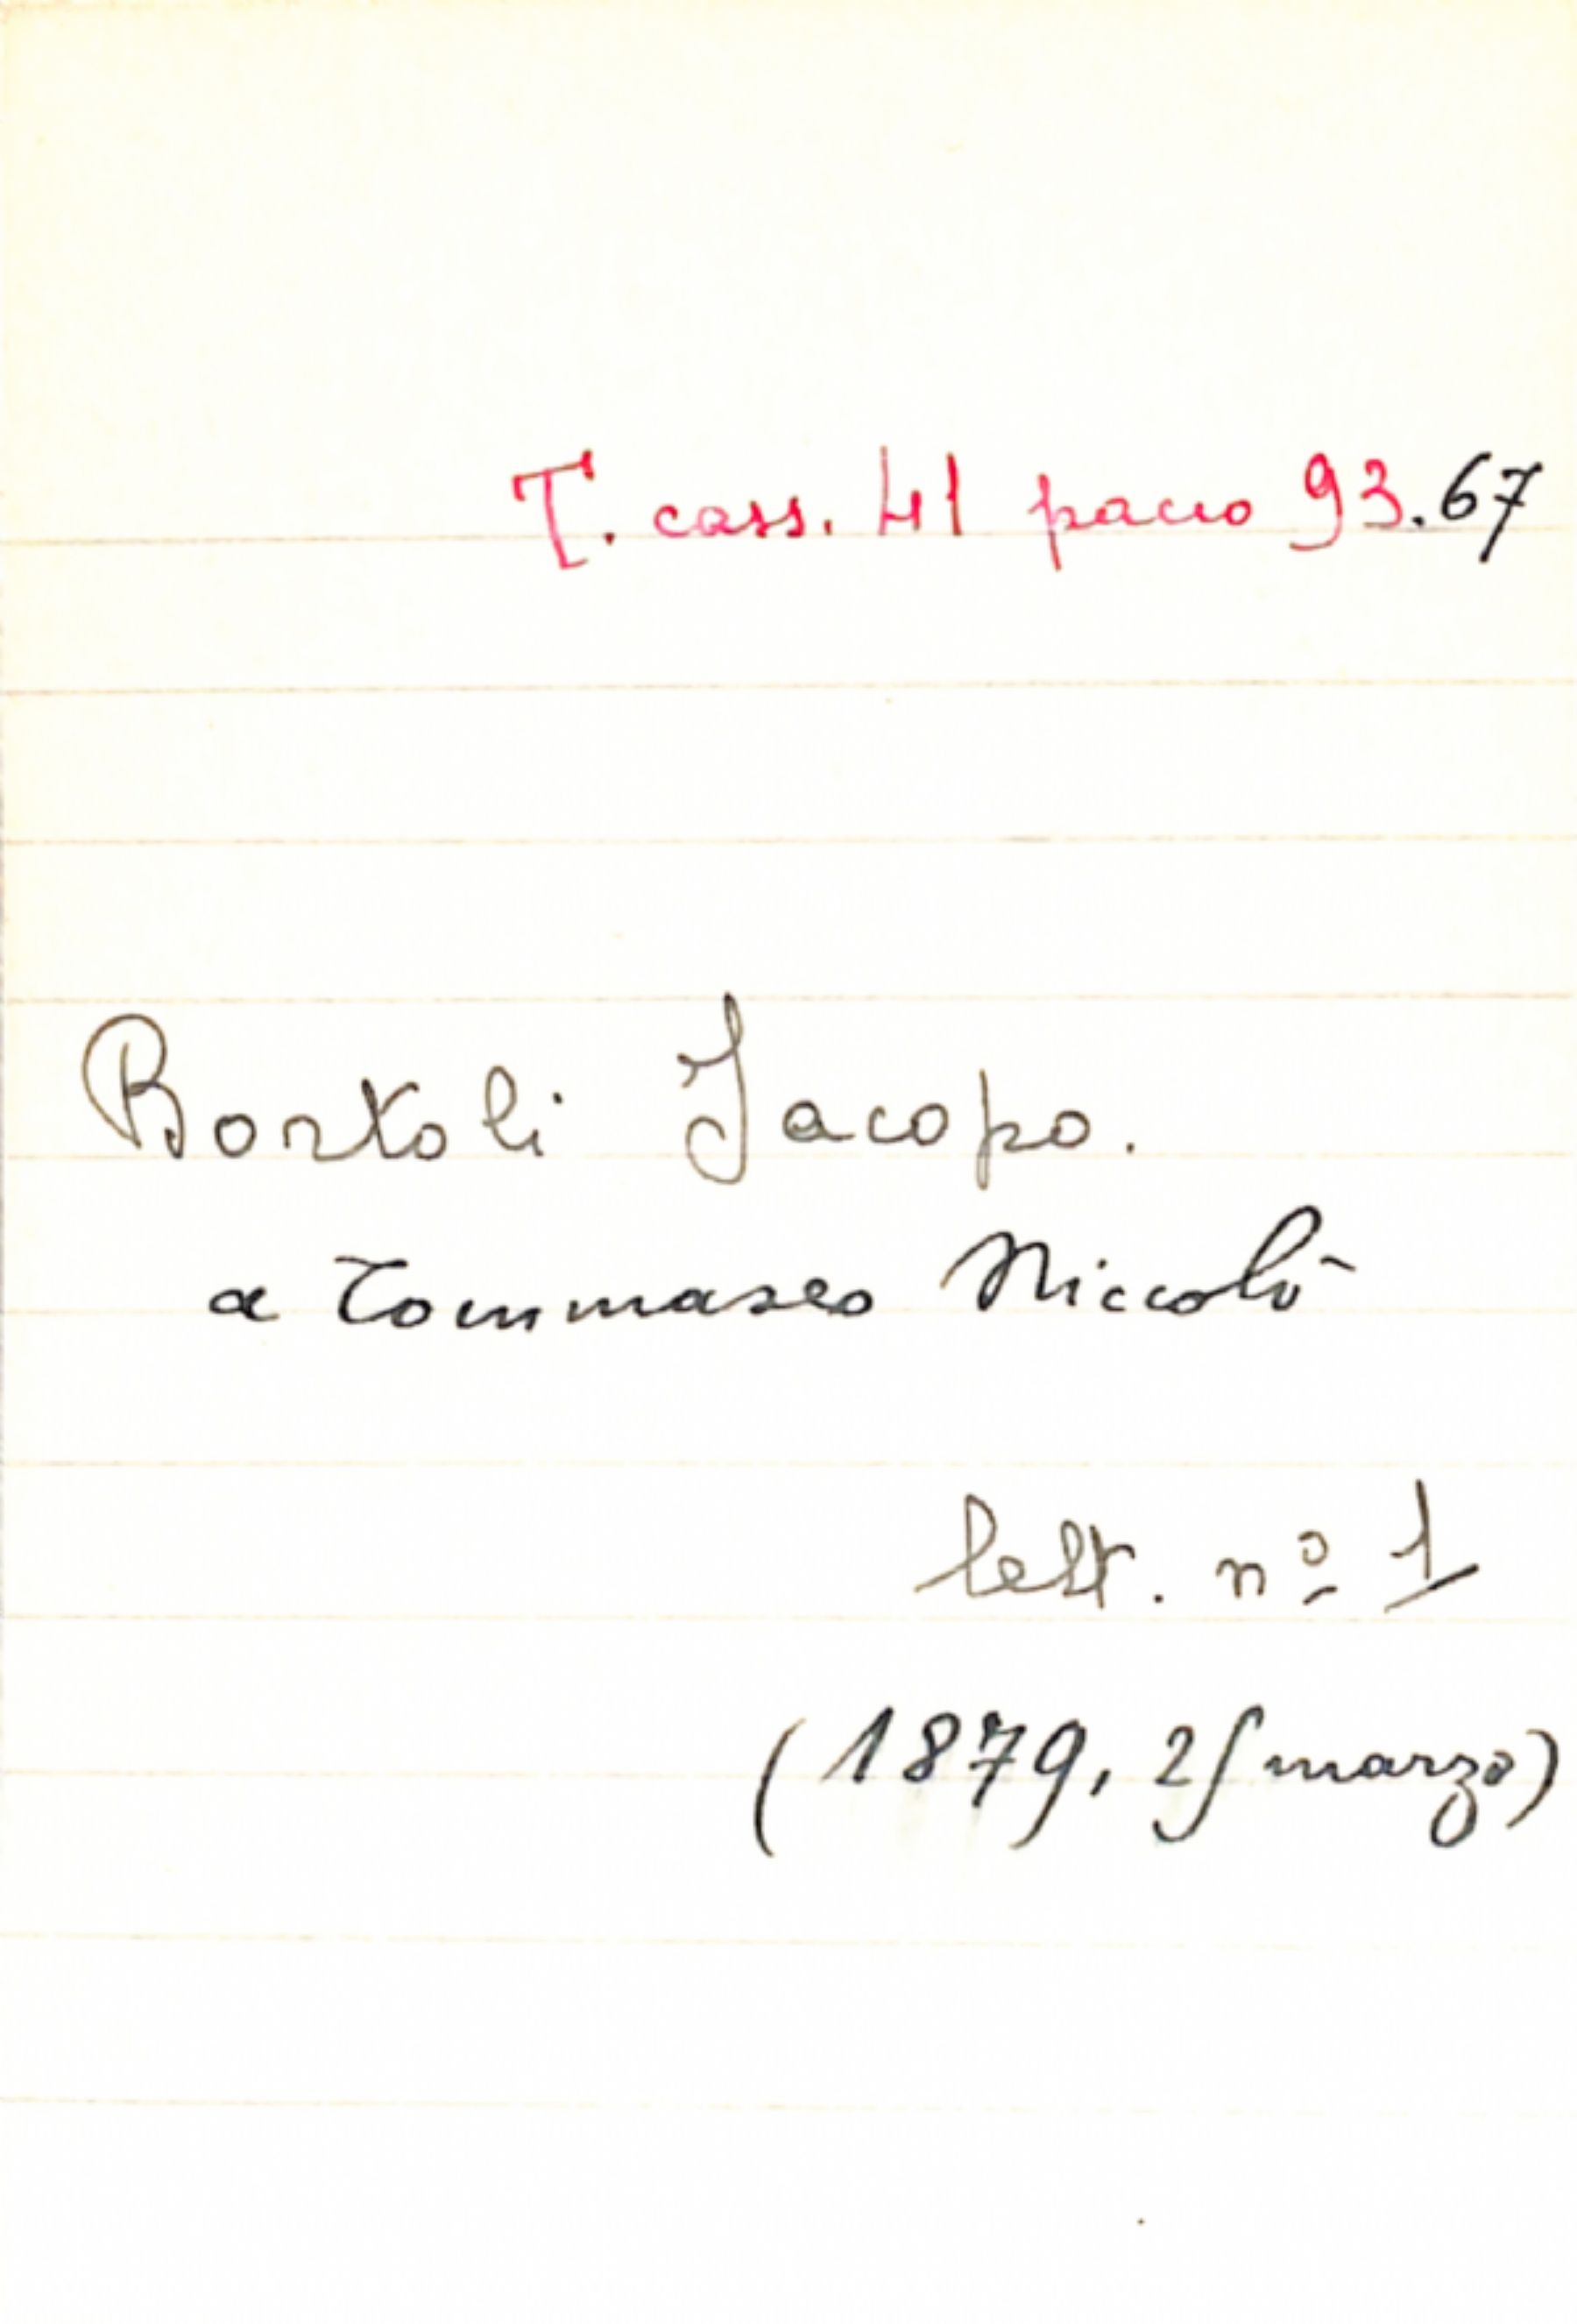 T. cass. 41 pacco 93.67
Bortoli Jacopo.
a Tommaseo Niccolò
lett. nº 1
(1879, 25 marzo)